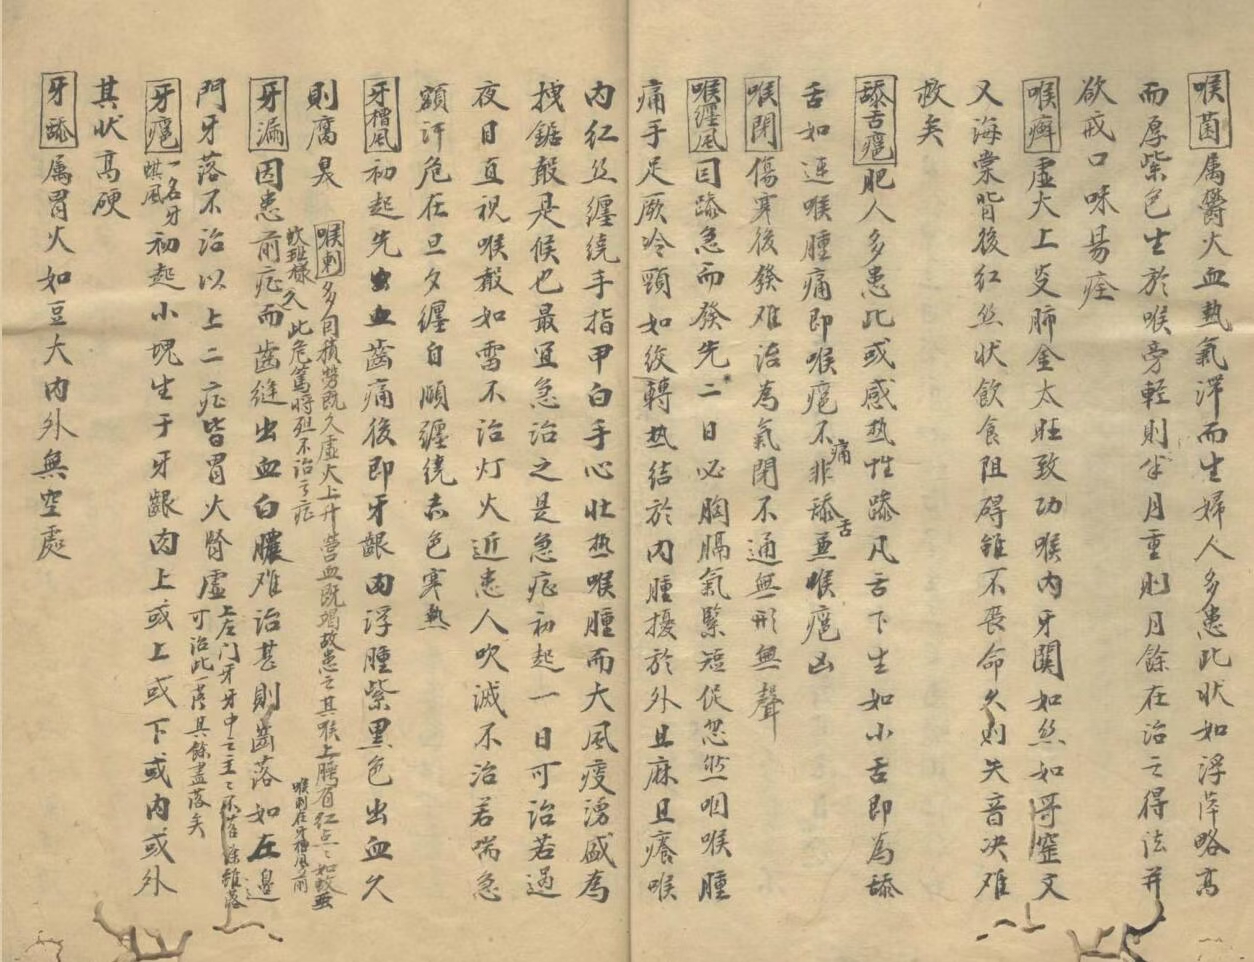 喉菌属鬱火血熱氣滞而生婦人多患此狀如浮萍略高
而厚紫色生於喉旁輕則半月重則月餘在治之得法并
欲戒口味易痊
喉癬虛火上炎肺金太旺致功喉內牙関如絲如哥窰文
又海棠背後紅絲狀飲食阻碍雖不丧命久則失音决难
救矣
舔舌瘪肥人多患此或感热性躁凡舌下生如小舌即為舔
舌如連喉腫痛即喉瘪不痛非舔舌並喉瘪凶
喉閉傷寒後發难治為氣閉不通無形無聲
喉纏風因躁急而發先二日必胸膈氣緊短促忽然咽喉腫
痛手足厥冷頸如絞轉热結於内腫擾於外且麻且癢喉
内红丝纏繞手指甲白手心壮热喉腫而大風痰湧盛為
拽鋸聲是候也最宜急治之是急症初起一日可治若過
夜目直視喉聲如雷不治灯火近患人吹滅不治若喘急
額汗危在旦夕纏自頤纏繞赤色寒熱
牙槽風初起先出血齒痛後即牙齦肉浮腫紫黑色出血久
則腐臭
喉刺多因積勞既久虛火上升營血既竭故患之其喉上腭有红点〻如蚊虫
蚊斑樣久此危篤將殂不治之症
喉刺在牙槽風前
牙漏因患前症而齒縫出血白膿难治甚則齒落如在邊
門牙落不治以上二症皆胃火腎虛
上左门牙牙中之主〻不落餘雖落
可治此一落其餘盡落矣
牙瘪一名牙蜞風初起小塊生于牙齦肉上或上或下或内或外
其狀高硬
牙舔属胃火如豆大内外無空處